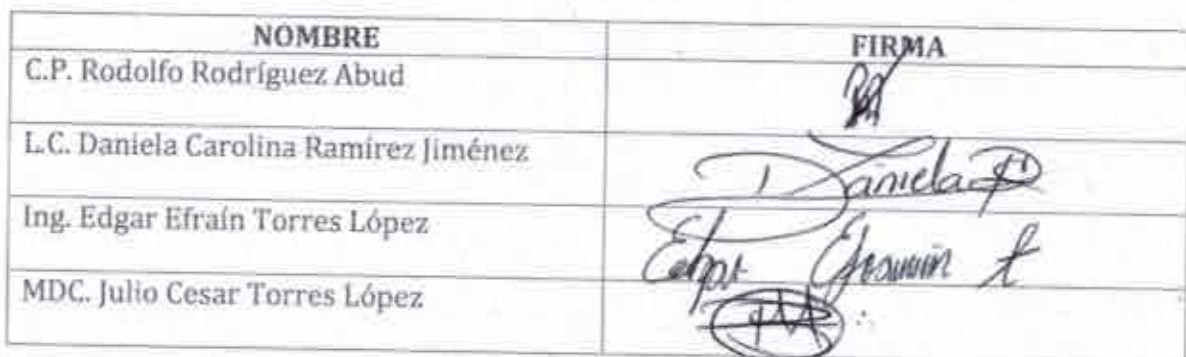 NOMBRE FIRMA
C.P. Rodolfo Rodríguez Abud
L.C. Daniela Carolina Ramírez Jiménez Daniela
Ing. Edgar Efraín Torres López
MDC. Julio Cesar Torres López